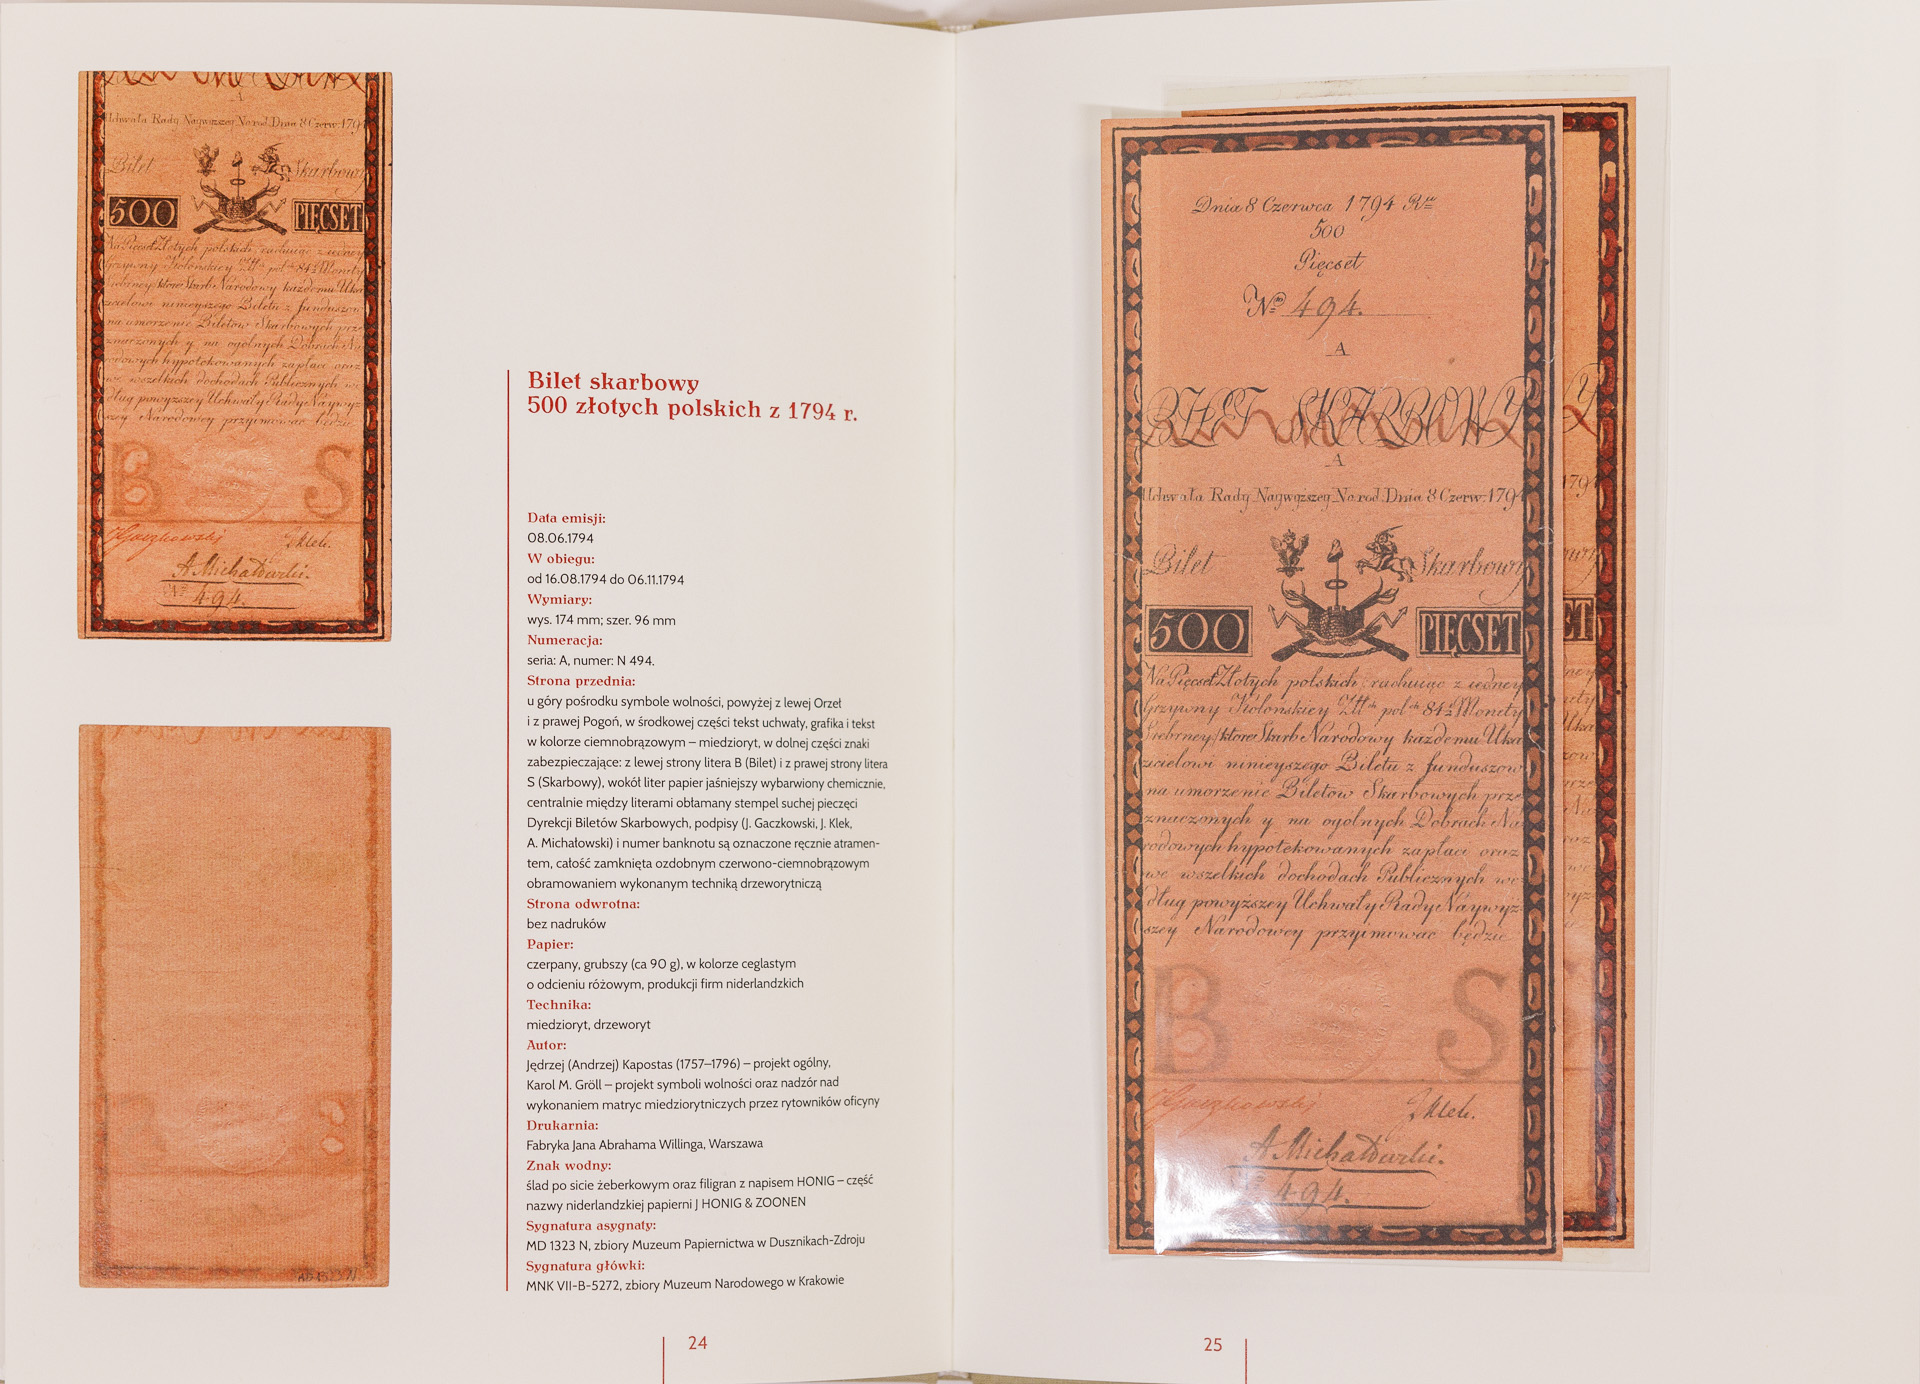 A
Uchwała Rady Naywyższey Narod. Dnia 8 Czerw. 1794
Bilet Skarbowy
500 PIĘCSET
Na Pięcset Złotych polskich, rachuiąc z iedney
Grzywny Kolońskiey Złt. pol. 84½ Monety
Srebrney, które Skarb Narodowy każdemu Uka
zicielowi ninieyszego Biletu z funduszow
na umorzenie Biletow Skarbowych prze
znaczonych y na ogolnych Dobrach Na
rodowych hypotekowanych zapłaci oraz
we wszelkich dochodach Publicznych we
dług powyższey Uchwały Rady Naywyż
szey Narodowey przyimować będzie
B S
JGaczkowski JKlek.
A Michałowski.
No 494.
Bilet skarbowy
500 złotych polskich z 1794 r.
Data emisji:
08.06.1794
W obiegu:
od 16.08.1794 do 06.11.1794
Wymiary:
wys. 174 mm; szer. 96 mm
Numeracja:
seria: A, numer: N 494.
Strona przednia:
u góry pośrodku symbole wolności, powyżej z lewej Orzeł
i z prawej Pogoń, w środkowej części tekst uchwały, grafika i tekst
w kolorze ciemnobrązowym – miedzioryt, w dolnej części znaki
zabezpieczające: z lewej strony litera B (Bilet) i z prawej strony litera
S (Skarbowy), wokół liter papier jaśniejszy wybarwiony chemicznie,
centralnie między literami obłamany stempel suchej pieczęci
Dyrekcji Biletów Skarbowych, podpisy (J. Gaczkowski, J. Klek,
A. Michałowski) i numer banknotu są oznaczone ręcznie atramen-
tem, całość zamknięta ozdobnym czerwono-ciemnobrązowym
obramowaniem wykonanym techniką drzeworytniczą
Strona odwrotna:
bez nadruków
Papier:
czerpany, grubszy (ca 90 g), w kolorze ceglastym
o odcieniu różowym, produkcji firm niderlandzkich
Technika:
miedzioryt, drzeworyt
Autor:
Jędrzej (Andrzej) Kapostas (1757–1796) – projekt ogólny,
Karol M. Gröll – projekt symboli wolności oraz nadzór nad
wykonaniem matryc miedziorytniczych przez rytowników oficyny
Drukarnia:
Fabryka Jana Abrahama Willinga, Warszawa
Znak wodny:
ślad po sicie żeberkowym oraz filigran z napisem HONIG – część
nazwy niderlandzkiej papierni J HONIG & ZOONEN
Sygnatura asygnaty:
MD 1323 N, zbiory Muzeum Papiernictwa w Dusznikach-Zdroju
Sygnatura główki:
MNK VII-B-5272, zbiory Muzeum Narodowego w Krakowie
24
Dnia 8 Czerwca 1794 Rku
500
Pięcset
No 494.
A
BILET SKARBOWY
A
Uchwała Rady Naywyższey Narod. Dnia 8 Czerw. 1794
Bilet Skarbowy
500 PIĘCSET
Na Pięcset Złotych polskich, rachuiąc z iedney
Grzywny Kolońskiey Złt. pol. 84½ Monety
Srebrney, które Skarb Narodowy każdemu Uka
zicielowi ninieyszego Biletu z funduszow
na umorzenie Biletow Skarbowych prze
znaczonych y na ogolnych Dobrach Na
rodowych hypotekowanych zapłaci oraz
we wszelkich dochodach Publicznych we
dług powyższey Uchwały Rady Naywyż
szey Narodowey przyimować będzie
B S
JGaczkowski JKlek.
A Michałowski.
494.
25